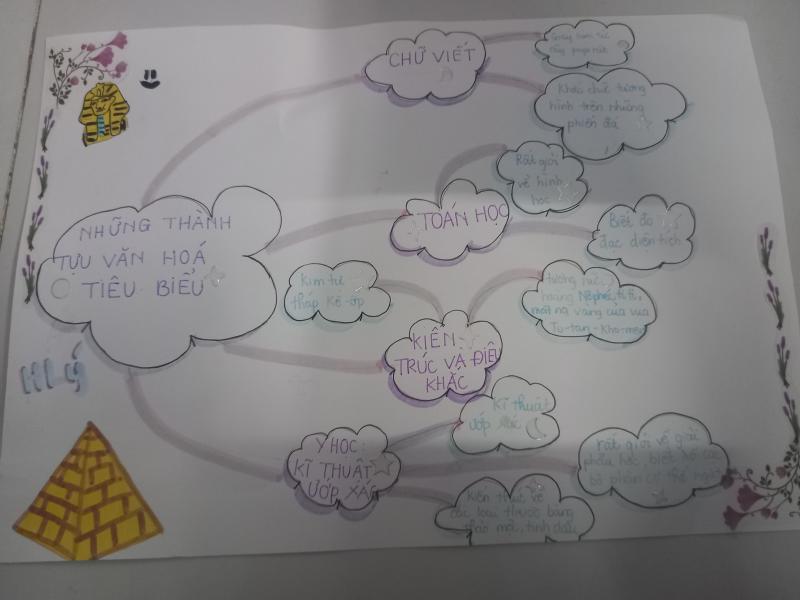 NHỮNG THÀNH
TỰU VĂN HOÁ
TIÊU BIỂU
CHỮ VIẾT
Khắc chữ tượng
hình trên những
phiến đá
TOÁN HỌC
Rất giỏi
về hình
học
Biết đo
đạc diện tích
KIẾN
TRÚC VÀ ĐIÊU
KHẮC
Kim tự
tháp Kê-ốp
hoàng
mặt nạ vàng của vua
Tu-tan-Kha-mun
Y HỌC:
KĨ THUẬT
ƯỚP XÁC
Kĩ thuật
ướp xác
rất giỏi về giải
phẫu học, biết rõ các
bộ phận cơ thể người
Kiến thức về
các loại thuốc bằng
thảo mộc, tinh dầu
HI Ý